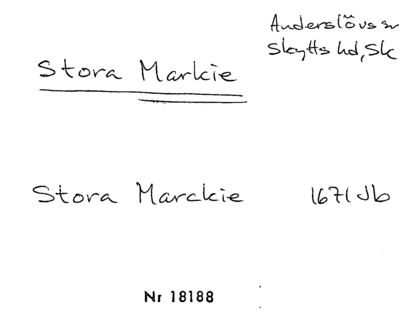 Anderslövs sn
Skytts hd, Sk
Stora Markie
Stora Marckie 1671 Jb
Nr 18188